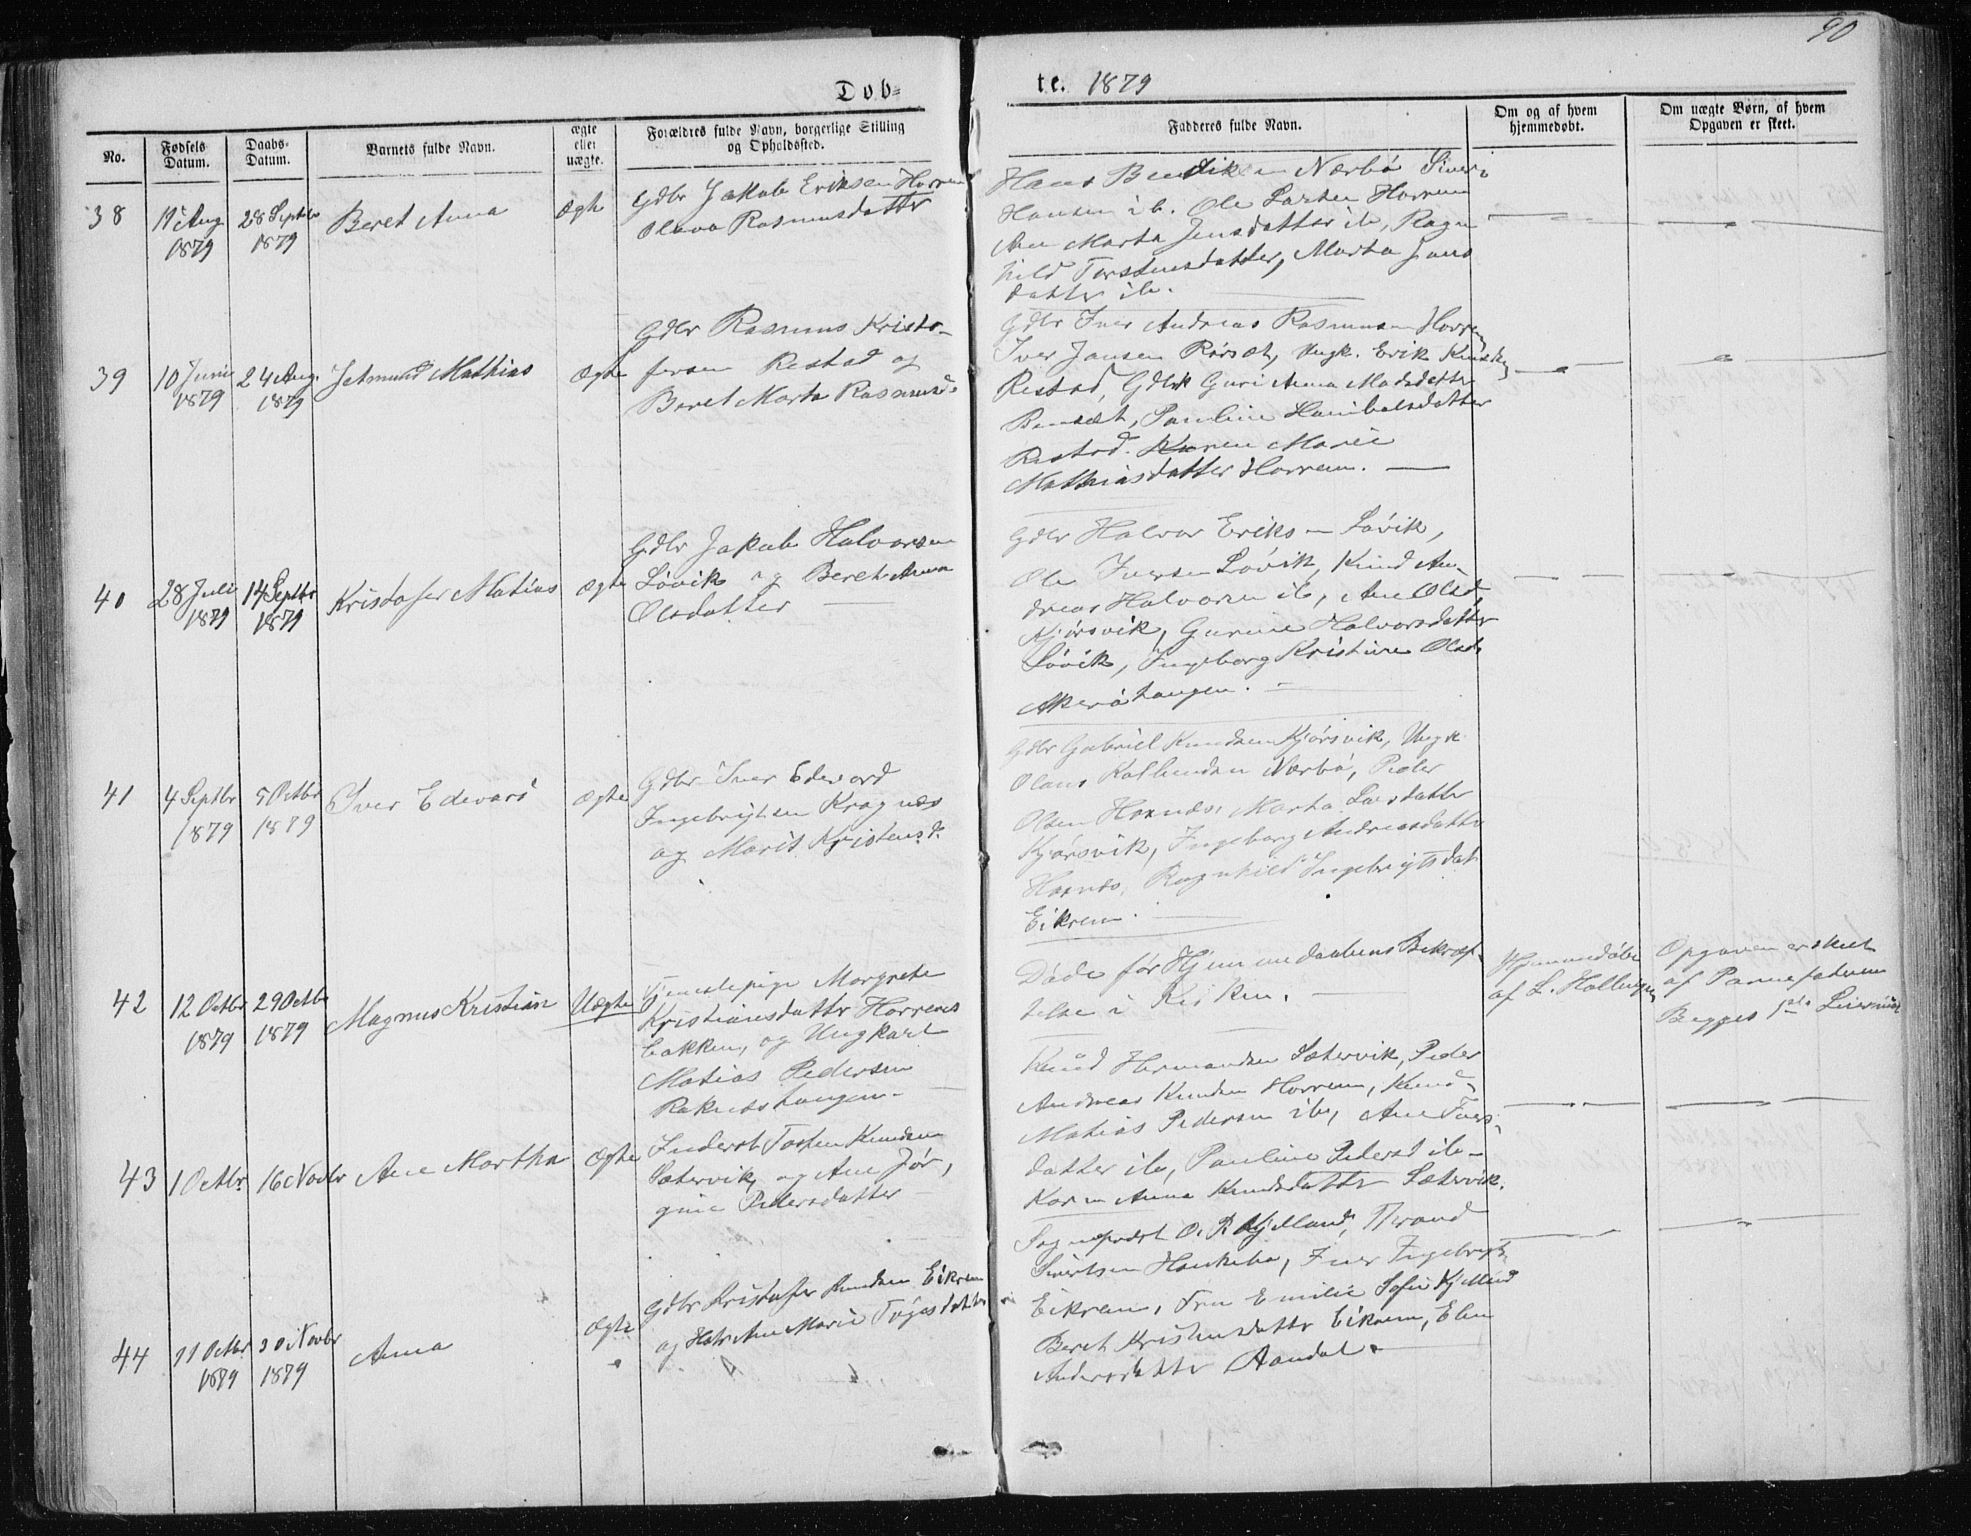 90
Döb=
te. 1879
No.
Fødsels Datum.
Daabs-Datum.
Barnets fulde Navn.
ægte eller uægte.
Forældres fulde Navn, borgerlige Stilling og Opholdssted.
Fadderes fulde Navn.
Om og af hvem hjemmedøbt.
Om uægte Børn, af hvem Opgaven er skeet.
38
Aug 1879
28 Septbr 1879
Beret Anna
Ægte
Gdbr Jakob Eriksen Horrem
Olava Rasmusdatter
Hans Nærbö
Hansen ib. Ole Larsen Horrem
Ane Marta Jensdatter ib, Ragn
hild Torstensdatter, Marta Jens
datter ib.
39
10 Juni 1879
24 Aug. 1879
Jetmund Mathias
Ægte
Gdbr Rasmus Kristo-
fersen Restad og
Beret Marta Rasmusd.
Gdbr Iver Andreas Rasmusen Horrem
Iver Jansen Rörsæt, Ungk. Erik
Restad, Guri Anna Madsdatter
Pauline Hanibalsdatter
Restad. Karen Marie
Mathiasdatter Horrem.
40
28 Juli 1879
14 Septbr 1879
Kristofer Matias
Ægte
Gdbr Jakob Halvorsen
Lövik og Beret Anna
Olsdatter
Gdbr Halvor Eriksen Lövik,
Ole Iversen Lövik, Knud An-
dreas Halvorsen ib, Ane Olsd.
Kjörsvik, Gurine Halvorsdatter
Lövik, Ingeborg Kristine Olsd.
Akeröhaugen.
41
4 Septbr 1879
5 Octbr 1879
Iver Edevard
Ægte
Gdbr Iver Edevard
Ingebrigtsen Kragnæs
og Marit Kristensd.
Gdbr Gabriel Knudsen Kjörsvik, Ungk.
Olaus Nærbö, Peder
Olsen Hoxnæs, Marta Larsdatter
Kjörsvik, Ingeborg Andreasdatter
Hoxnæs, Ragnhild Ingebrigtsdat
Eikrem.
42
12 Octbr 1879
29 Octbr 1879
Magnus Kristian
Uægte
Tjenestepige Margrete
Kristiansdatter Horrems
bakken, og Ungkarl
Matias Pedersen
Rakneshaugen.
Döde för Hjemmedaabens Bekræf-
telse i Kirken.
Hjemmedöbt
af L.
Opgaven er skeet
af Barnefaderen
Begges 1ste Leiermaal
43
1 Octbr.
16 Novbr
Ane Martha
Ægte
Inderst Knudsen
Sætervik og Ane Jör,
gine Pedersdatter
Knud Hermandsen Sætervik, Peder
Andreas Knudsen Horrem, Knud
Matias Pedersen ib, Ane Ivers-
datter ib, Pauline Pedersd ib
Karen Anna Knudsdatter Sætervik.
44
11 Octbr 1879
30 Novbr 1879
Anna
Ægte
Gdbr Kristofer Knudsen Eikrem
og Ane Marie
Sognepræst O. R. Kjelland,
Sivertsen Iver Ingebrigts.
Eikrem, Fru Emilie Sofie Kjelland
Beret Kristensdatter Eikrem, Elen
Andersdatter Aandal.